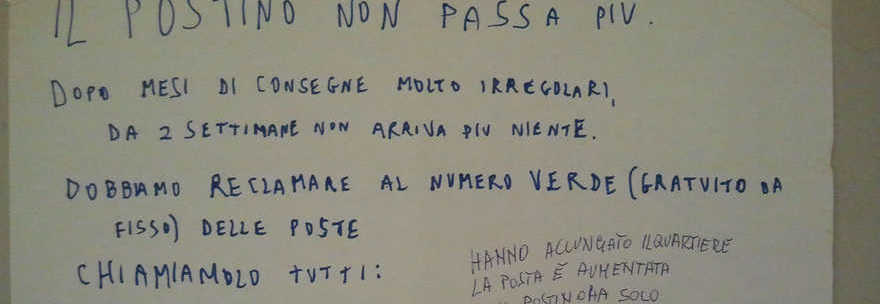 IL POSTINO NON PASSA PIU.
DOPO MESI DI CONSEGNE MOLTO IRREGOLARI,
DA 2 SETTIMANE NON ARRIVA PIU NIENTE.
DOBBIAMO RECLAMARE AL NUMERO VERDE (GRATUITO DA
FISSO) DELLE POSTE
CHIAMIAMOLO TUTTI:
HANNO ALLUNGATO IL QUARTIERE
LA POSTA È AUMENTATA
POSTINO HA SOLO